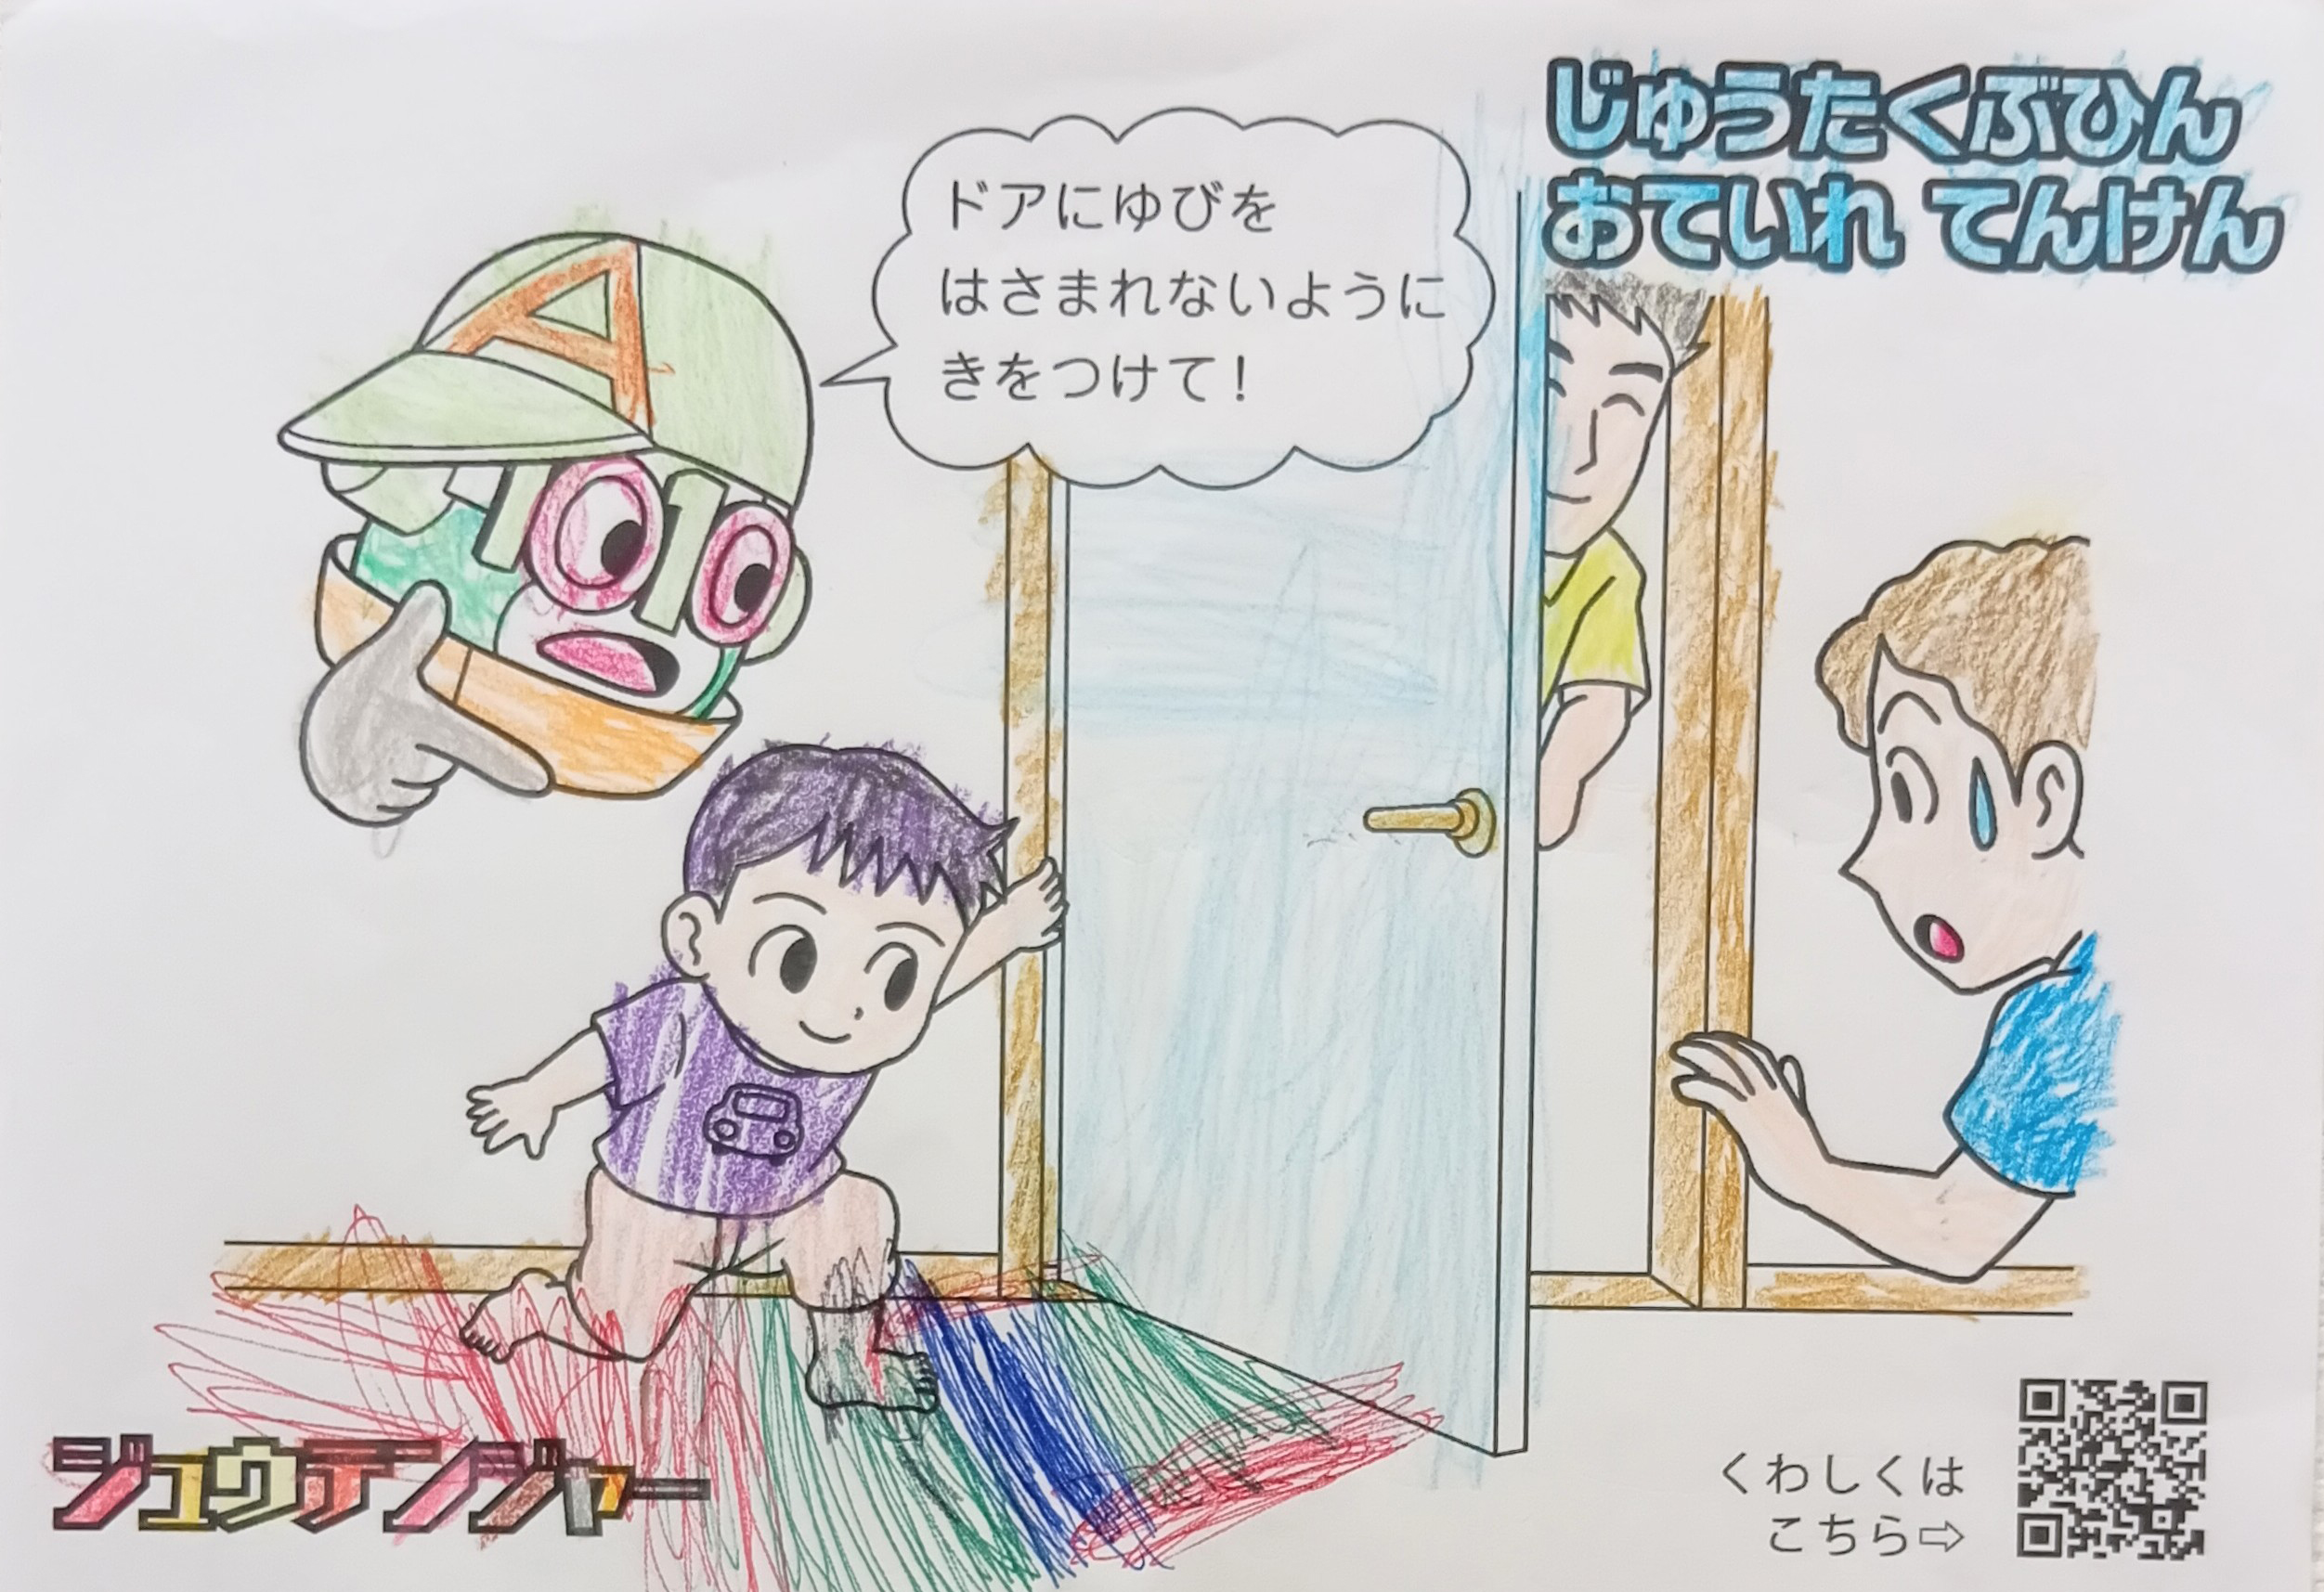 じゅうたくぶひん
おていれ てんけん
ドアにゆびを
はさまれないように
きをつけて!
A
1010
ジュウテンジャー
くわしくは
こちら⇨